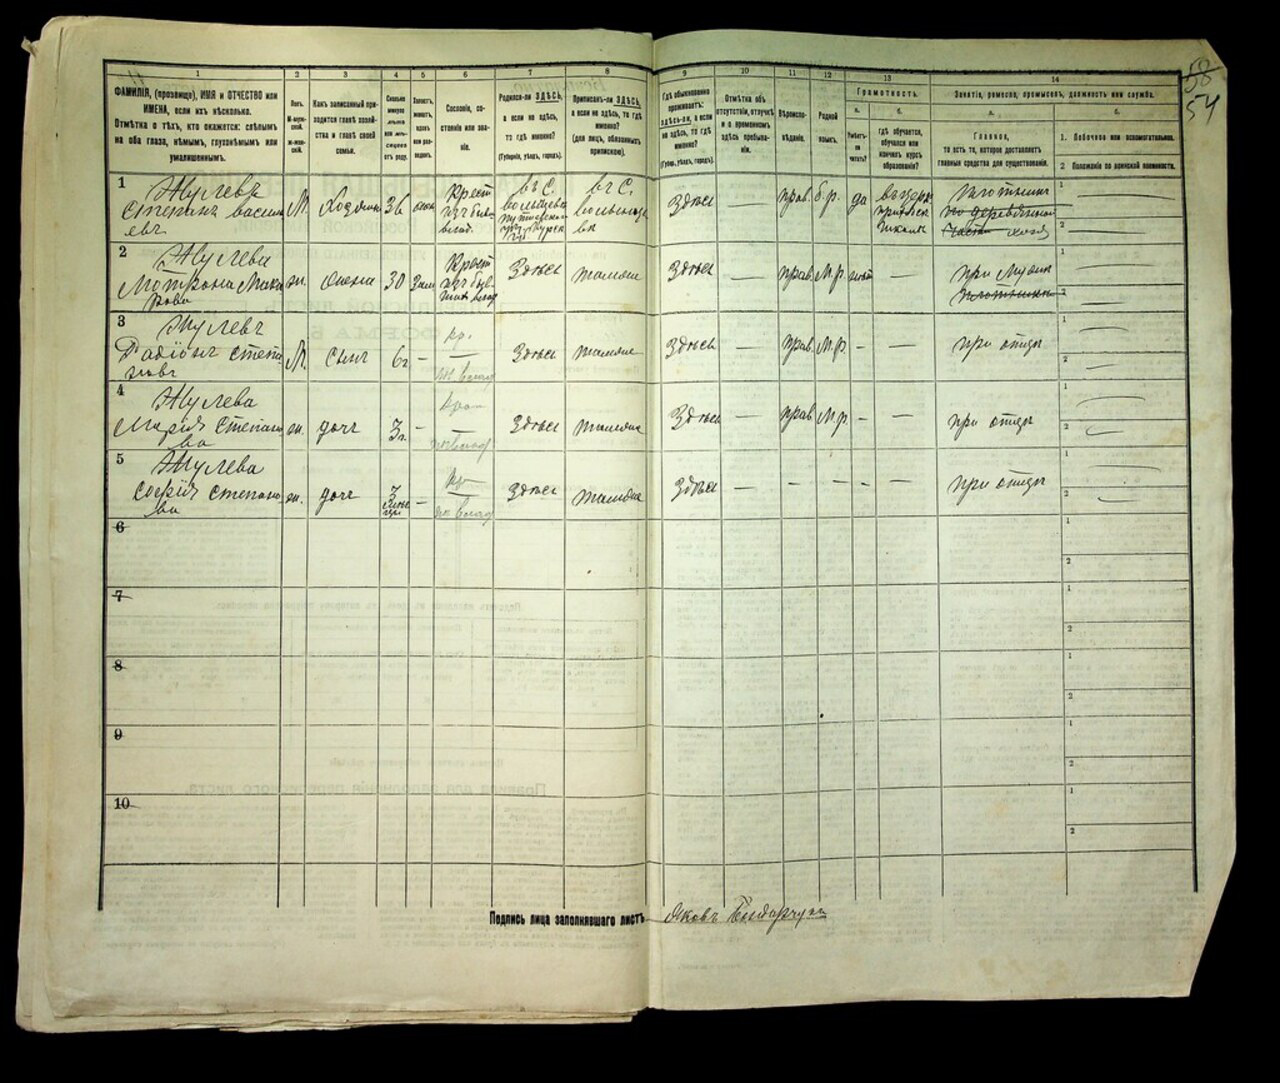 58
54
1
2
3
4
5
6
7
8
9
10
11
12
13
14
ФАМИЛІЯ, (прозвище), ИМЯ и ОТЧЕСТВО или
ИМЕНА, если ихъ нѣсколько.
Отмѣтка о тѣхъ, кто окажется: слѣпымъ
на оба глаза, нѣмымъ, глухонѣмымъ или
умалишеннымъ.
Полъ.
М-муж-
ской.
ж-жен-
скій.
Какъ записанный при-
ходится главѣ хозяй-
ства и главѣ своей
семьи.
Сколько
минуло
лѣтъ
или мѣ-
сяцевъ
отъ роду.
Холостъ,
женатъ,
вдовъ
или раз-
веденъ.
Сословіе, со-
стояніе или зва-
ніе.
Родился-ли ЗДѢСЬ,
а если не здѣсь,
то гдѣ именно?
(Губернія, уѣздъ, городъ).
Приписанъ-ли ЗДѢСЬ,
а если не здѣсь, то гдѣ
именно?
(для лицъ, обязанныхъ
припискою).
Гдѣ обыкновенно
проживаетъ:
здѣсь-ли, а если
не здѣсь, то гдѣ
именно?
(Губ., уѣздъ, городъ).
Отмѣтка объ
отсутствіи, отлучкѣ
и о временномъ
здѣсь пребыва-
ніи.
Вѣроиспо-
вѣданіе.
Родной
языкъ.
Грамотность.
а.
Умѣетъ-
ли
читать?
б.
гдѣ обучается,
обучался или
кончилъ курсъ
образованія?
Занятіе, ремесло, промыселъ, должность или служба.
а.
Главное,
то есть то, которое доставляетъ
главныя средства для существованія.
б.
1. Побочное или вспомогательное.
2 Положеніе по воинской повинности.
1
Жулевъ
Степанъ Васили
евъ
М.
Хозяинъ
36
Крест
въ С.
въ С.
Здѣсь
—
прав.
б. р.
да
плотникъ
2
Жулева
Мотрона Мака
рова
ж.
жена
30
Зам
Крест
Здѣсь
тамже
Здѣсь
—
прав.
М. р.
нѣт
—
при мужѣ
плотникъ
3
Жулевъ
Радіонъ Степа
новъ
М.
сынъ
6 г
—
кр.
Здѣсь
тамже
Здѣсь
—
прав.
М. р.
—
—
при отцѣ
4
Жулева
Марія Степано
ва
ж.
дочь
3 г.
—
Здѣсь
тамже
Здѣсь
—
прав.
М. р.
—
—
при отцѣ
5
Жулева
Софія Степано
ва
ж.
дочь
3
—
кр
Здѣсь
тамже
Здѣсь
—
—
—
—
—
при отцѣ
6
7
8
9
10
Подпись лица заполнявшаго листъ
Яковъ Бондарчукъ